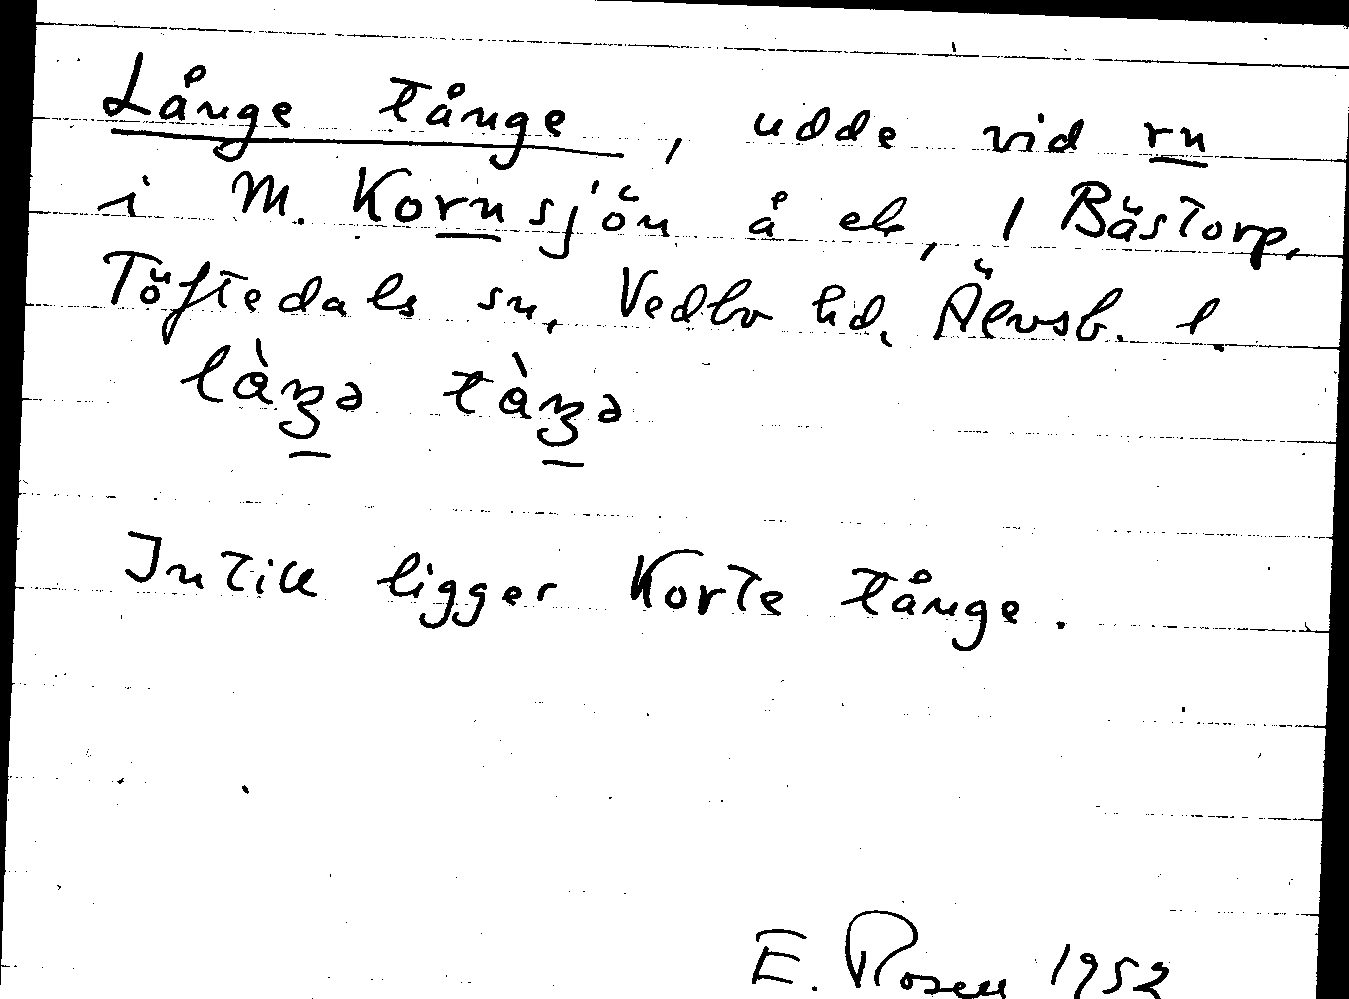 Långe tånge, udde vid rn
i M. Kornsjön å ek, 1 Bästorp,
Töftedals sn, Vedbo hd, Älvsb. l.
Intill ligger Korte tånge.
E. Rosen 1952